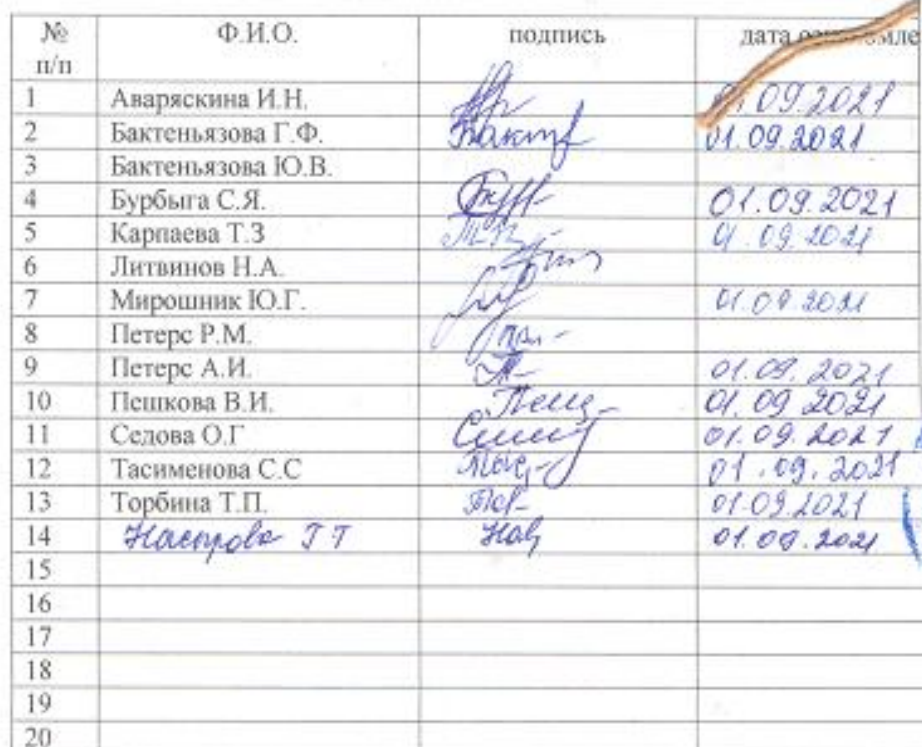 № п/п Ф.И.О. подпись дата
1 Аваряскина И.Н. 01.09.2021
2 Бактеньязова Г.Ф. 01.09.2021
3 Бактеньязова Ю.В.
4 Бурбыга С.Я. 01.09.2021
5 Карпаева Т.З 01.09.2021
6 Литвинов Н.А.
7 Мирошник Ю.Г. 01.09.2021
8 Петерс Р.М.
9 Петерс А.И. 01.09.2021
10 Пешкова В.И. 01.09.2021
11 Седова О.Г 01.09.2021
12 Тасименова С.С 01.09.2021
13 Торбина Т.П. 01.09.2021
14 01.09.2021
15
16
17
18
19
20